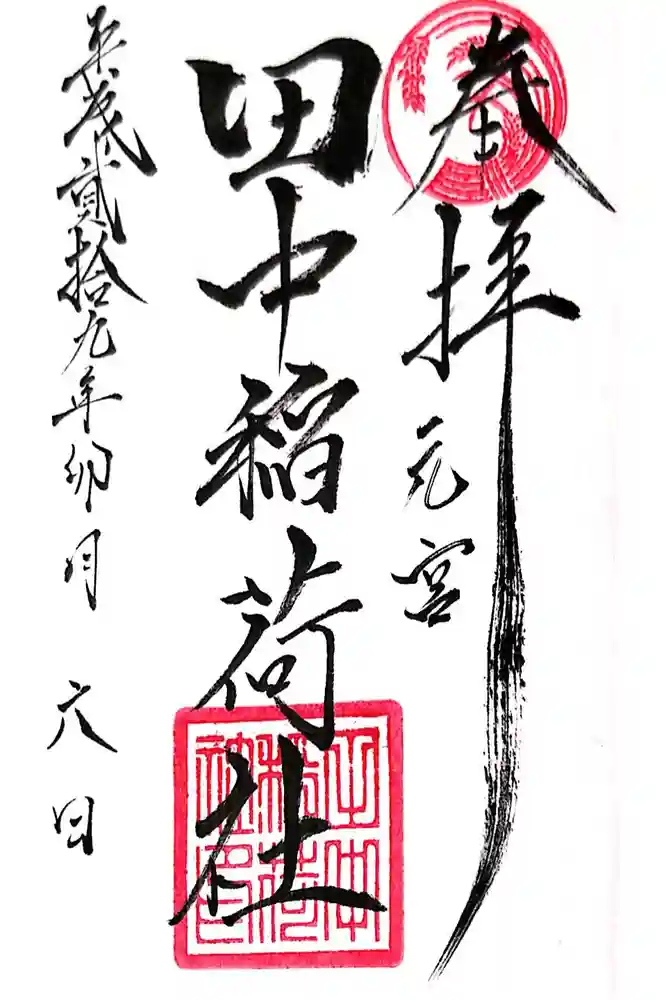 奉拝
元宮
田中稲荷社
平成貳拾九年卯月六日
田中稲荷社印